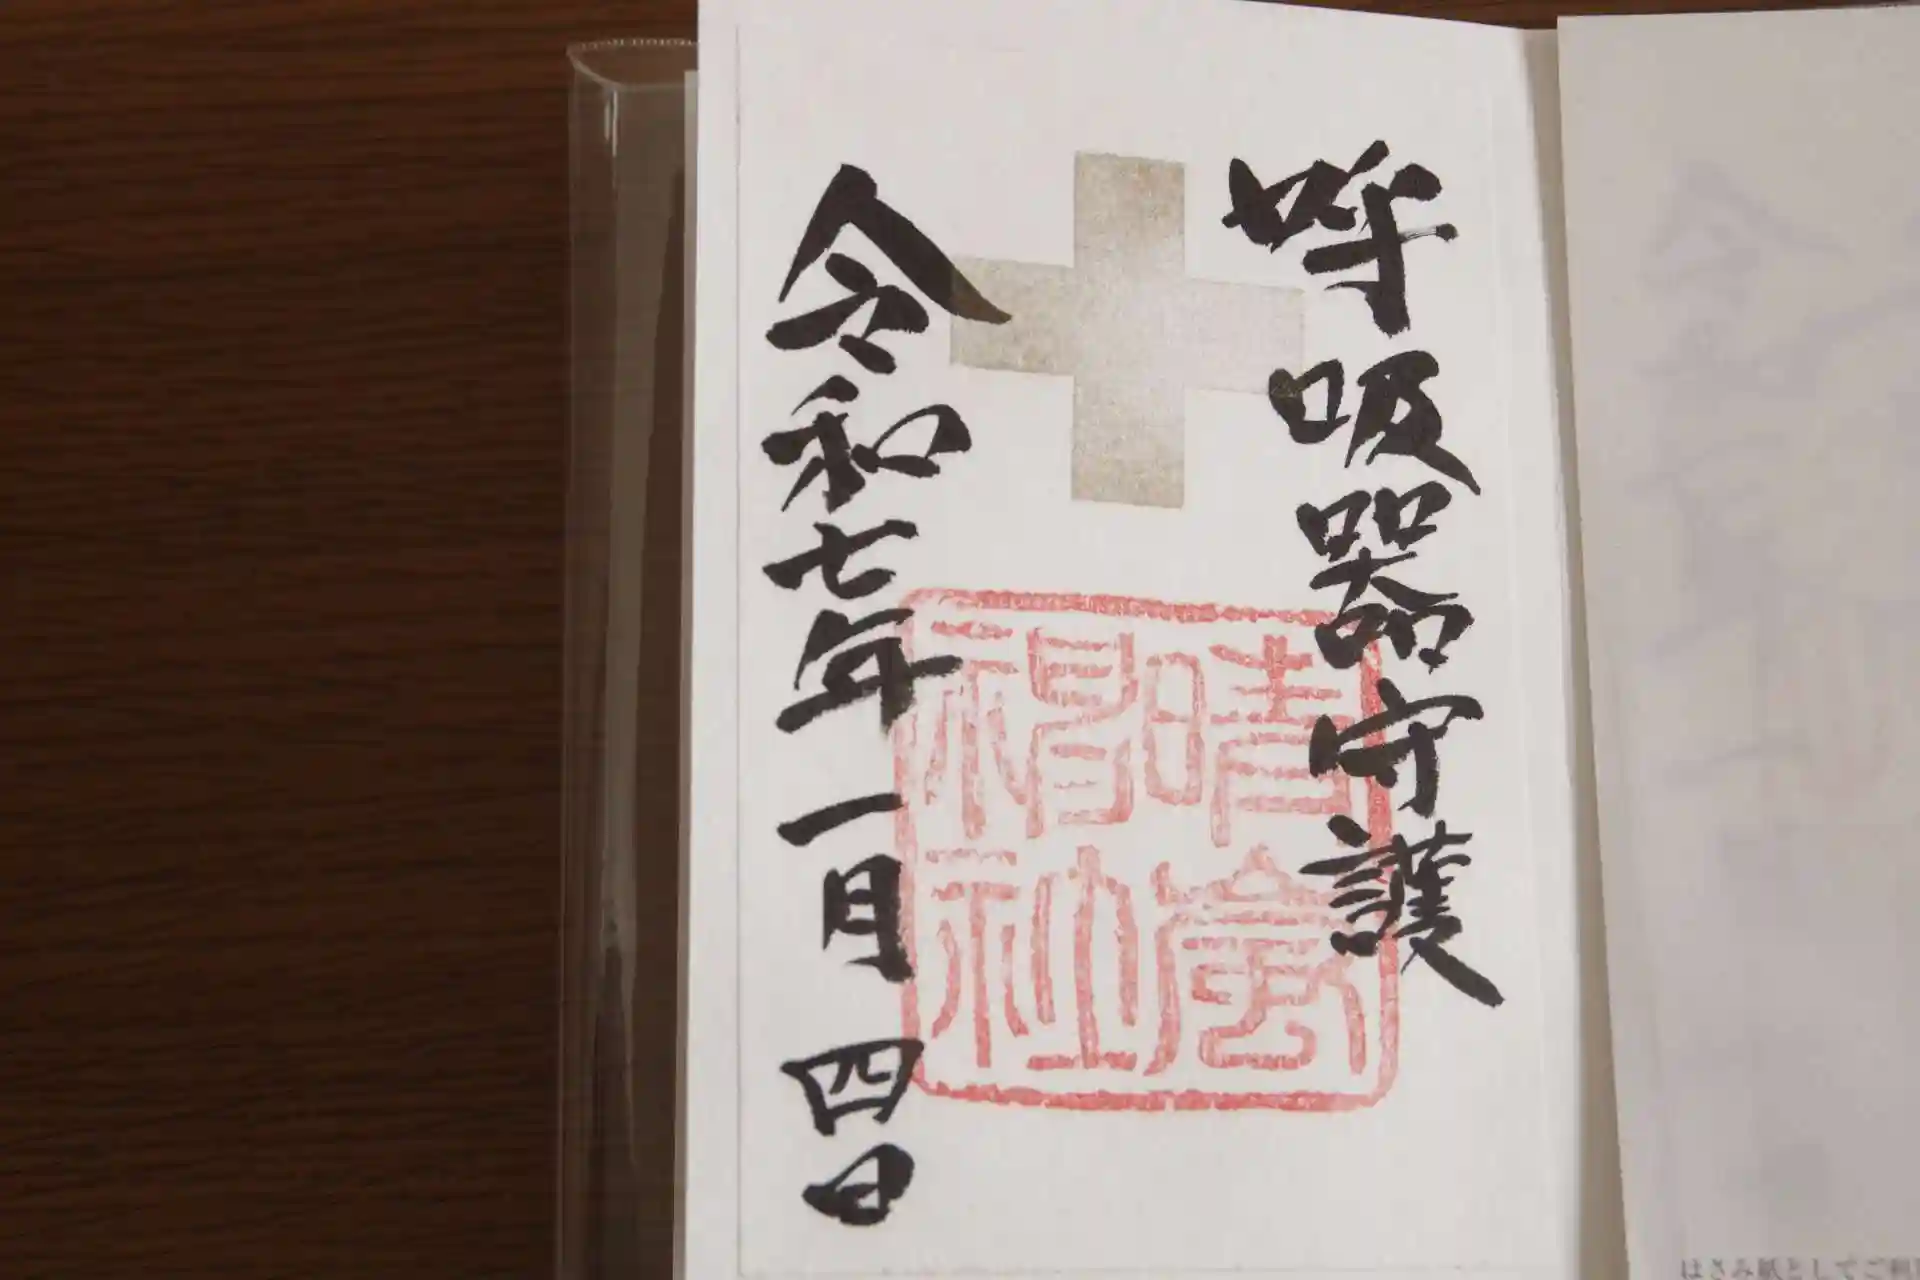 呼吸器守護
晴嵐
神社
令和七年一月四日
はさみ紙としてご利